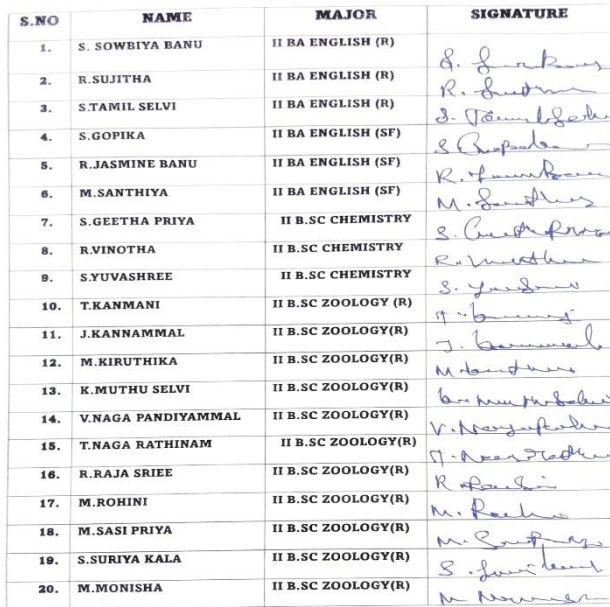 S.NO NAME MAJOR SIGNATURE
1. S. SOWBIYA BANU II BA ENGLISH (R)
2. R.SUJITHA II BA ENGLISH (R)
3. S.TAMIL SELVI II BA ENGLISH (R) S. Tamil Selvi
4. S.GOPIKA II BA ENGLISH (SF)
5. R.JASMINE BANU II BA ENGLISH (SF)
6. M.SANTHIYA II BA ENGLISH (SF)
7. S.GEETHA PRIYA II B.SC CHEMISTRY
8. R.VINOTHA II B.SC CHEMISTRY
9. S.YUVASHREE II B.SC CHEMISTRY
10. T.KANMANI II B.SC ZOOLOGY (R)
11. J.KANNAMMAL II B.SC ZOOLOGY(R)
12. M.KIRUTHIKA II B.SC ZOOLOGY(R)
13. K.MUTHU SELVI II B.SC ZOOLOGY(R)
14. V.NAGA PANDIYAMMAL II B.SC ZOOLOGY(R)
15. T.NAGA RATHINAM II B.SC ZOOLOGY(R)
16. R.RAJA SRIEE II B.SC ZOOLOGY(R)
17. M.ROHINI II B.SC ZOOLOGY(R)
18. M.SASI PRIYA II B.SC ZOOLOGY(R)
19. S.SURIYA KALA II B.SC ZOOLOGY(R)
20. M.MONISHA II B.SC ZOOLOGY(R)